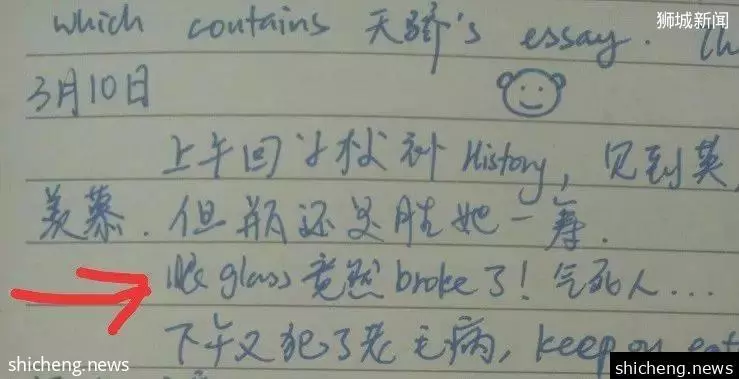 狮城新闻
which contains 天骄's essay. Th
3月10日
上午回学校补 History, 见到英
羡慕. 但瓶还是胜她一筹.
眼glass竟然broke了! 气死人...
下午又犯了老毛病, keep on eat
shicheng.news
shicheng.news